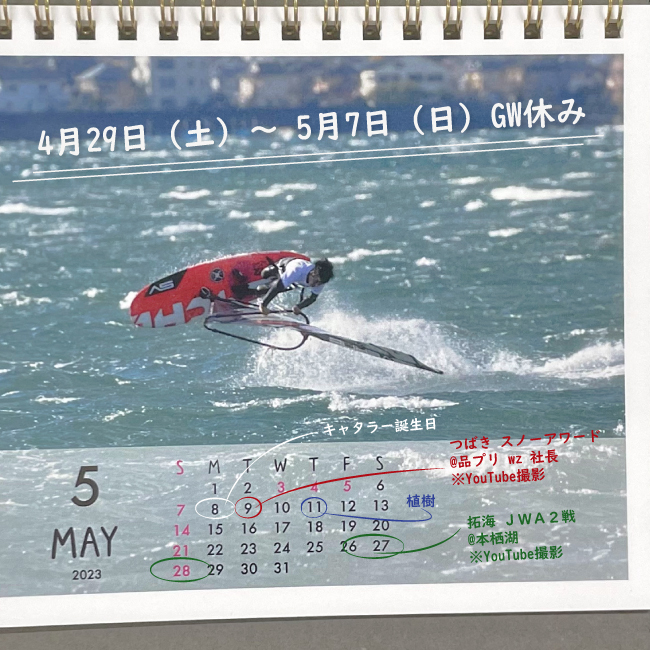 4月29日（土）～ 5月7日（日）GW休み
キャタラー誕生日
つばき スノーアワード
@品プリ wz 社長
※YouTube撮影
植樹
拓海 ＪＷＡ２戦
@本栖湖
※YouTube撮影
5
MAY
2023
S M T W T F S
1 2 3 4 5 6
7 8 9 10 11 12 13
14 15 16 17 18 19 20
21 22 23 24 25 26 27
28 29 30 31